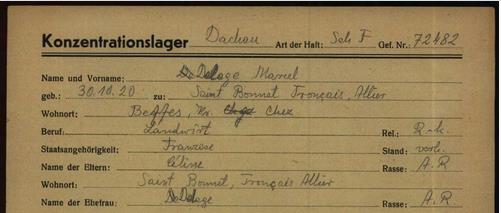 Konzentrationslager Dachau Art der Haft: Sch F Gef. Nr.: 72482
Name und Vorname: Delage Marcel
geb.: 30.10.20 zu: Saint Bonnet Tronçais, Allier
Wohnort: Beffes, Kr. Cher
Beruf: Landwirt Rel.: R.-k.
Staatsangehörigkeit: Franzose Stand: verh.
Name der Eltern: Céline Rasse: A.R
Wohnort: Saint Bonnet, Tronçais Allier
Name der Ehefrau: Delage Rasse: A.R